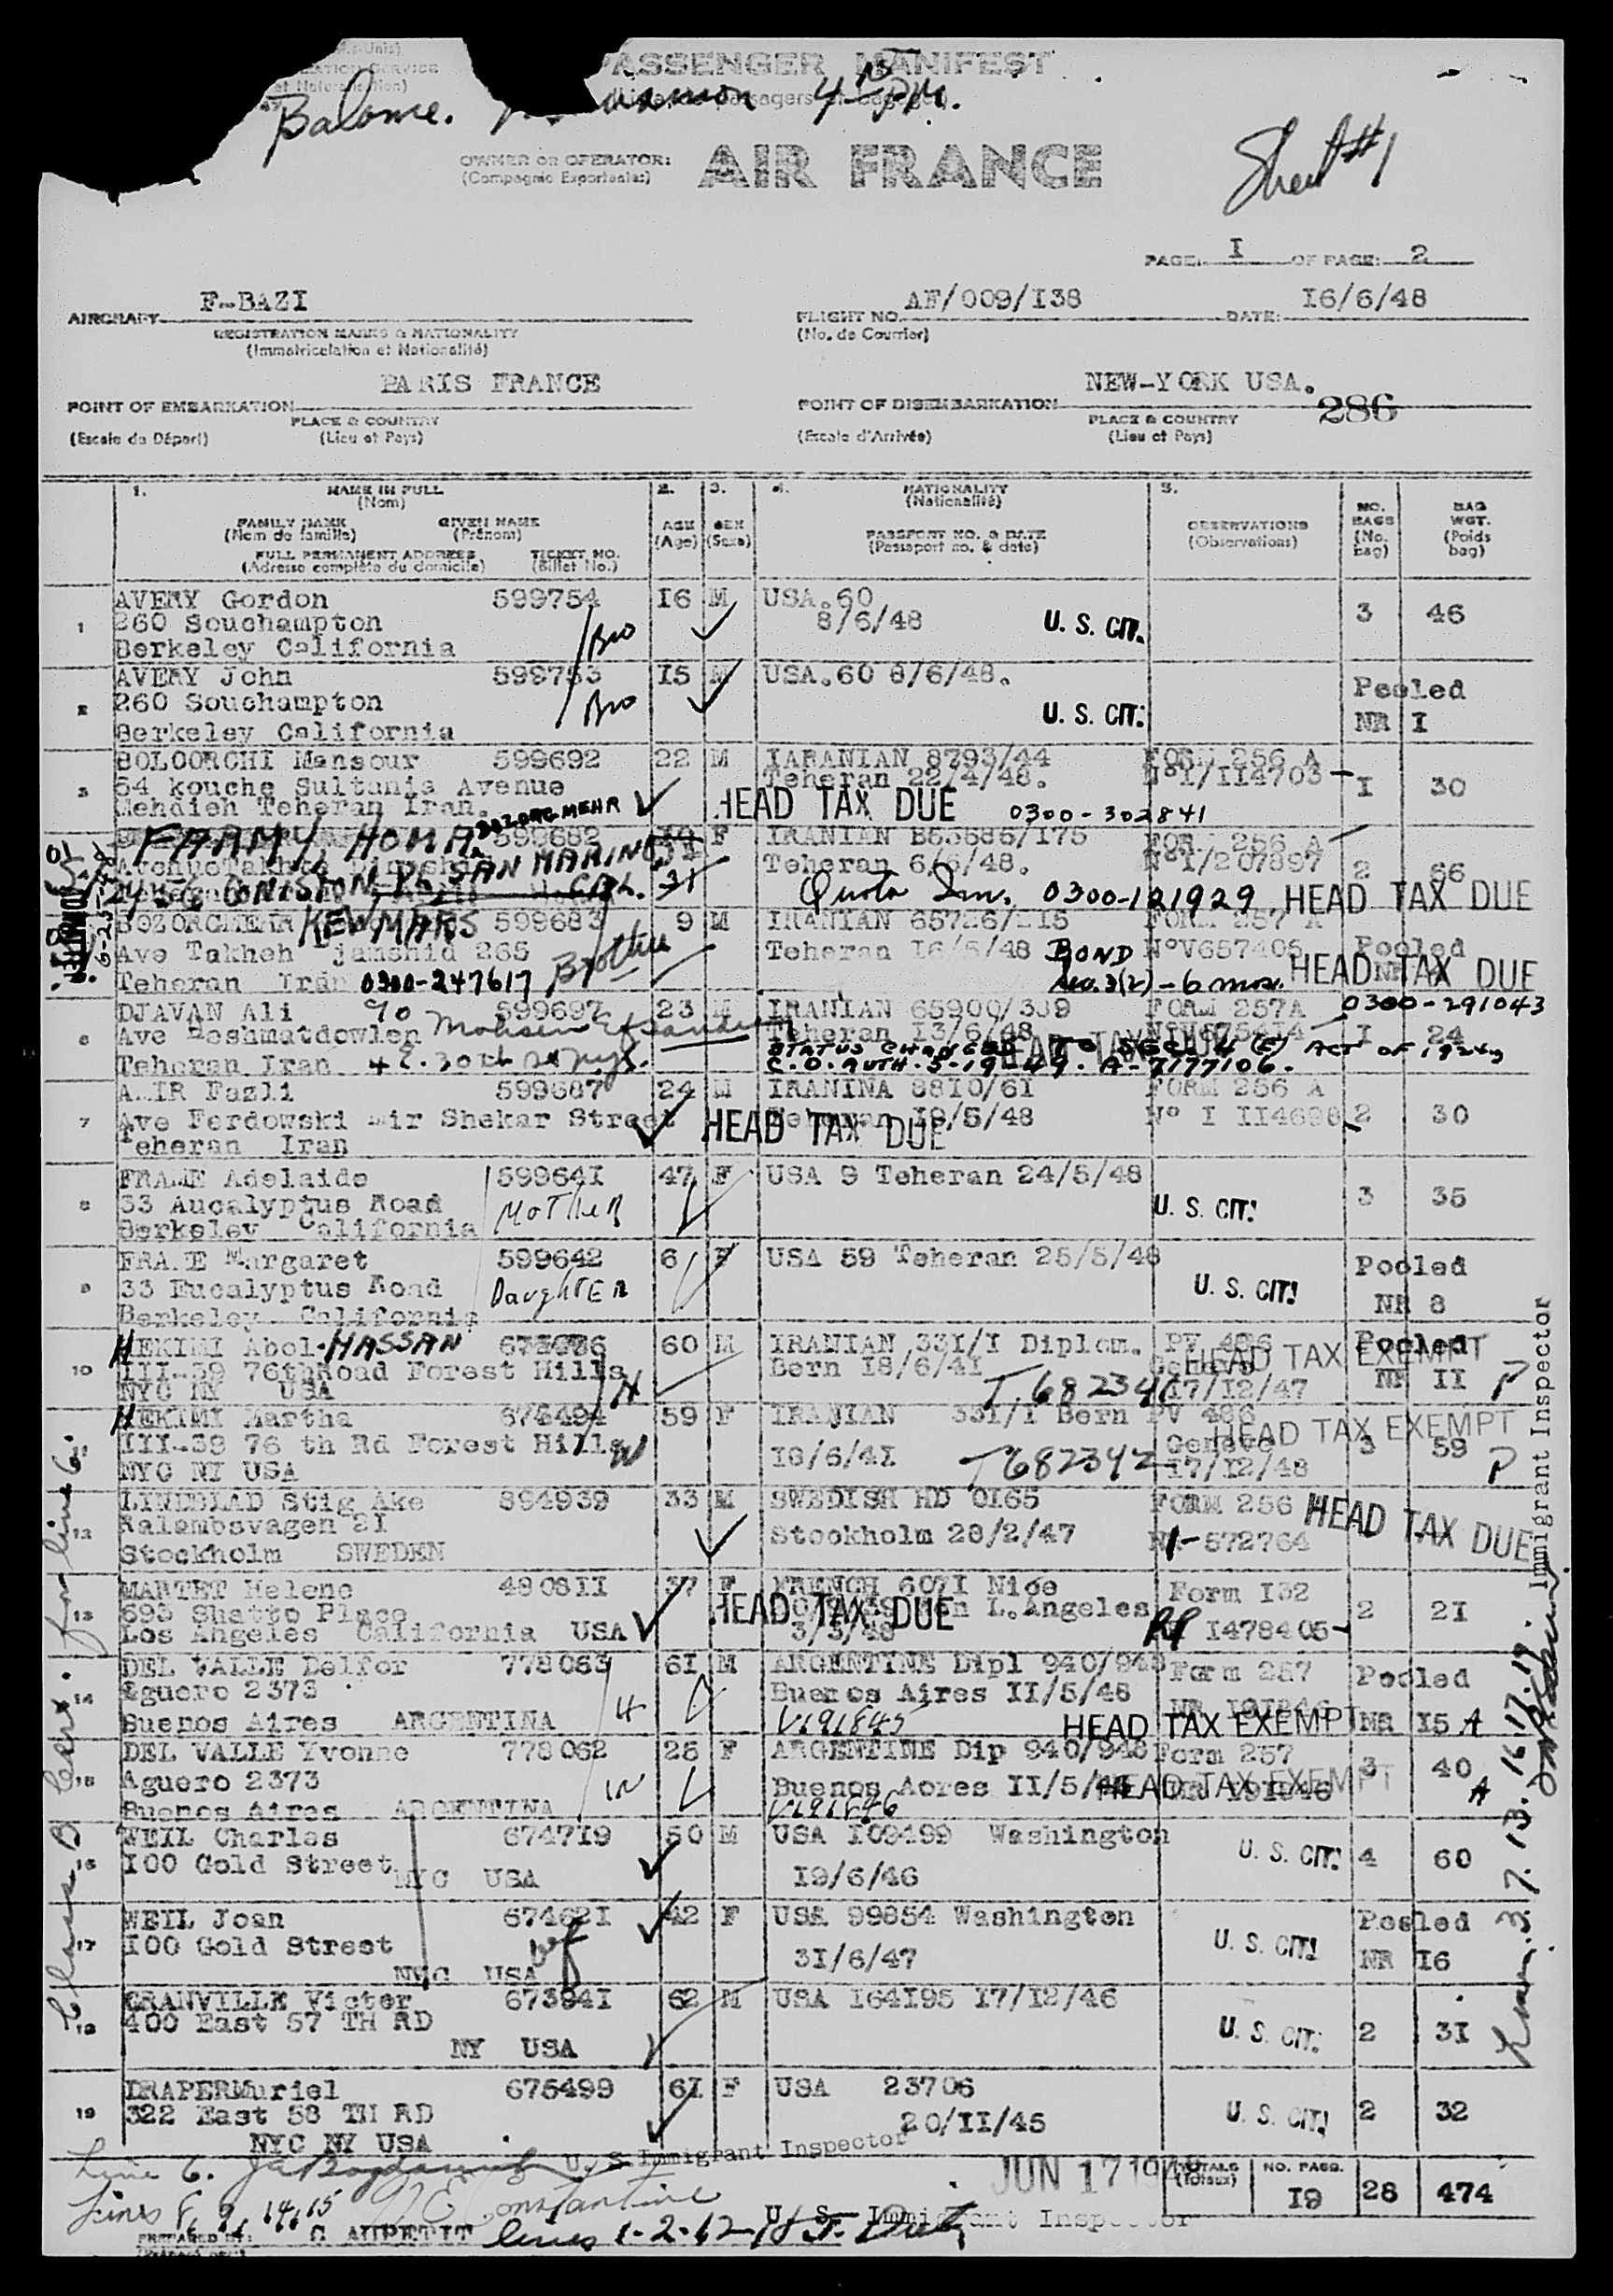 PASSENGER MANIFEST
Balance.
4 15 PM.
OWNER OR OPERATOR: AIR FRANCE
(Compagnie Exportatas)
Sheet #1
PAGE: I OF PAGE: 2
AIRCRAFT F-BAZI
REGISTRATION MARKS & NATIONALITY
(Immatriculation et Nationalité)
FLIGHT NO. AF/009/I38 DATE: I6/6/48
(No. de Courrier)
POINT OF EMBARKATION PARIS FRANCE
PLACE & COUNTRY
(Escale de Départ) (Lieu et Pays)
POINT OF DISEMBARKATION NEW-YORK USA.
286
PLACE & COUNTRY
(Escale d'Arrivée) (Lieu et Pays)
1. NAME IN FULL
(Nom)
FAMILY NAME GIVEN NAME
(Nom de famille) (Prénom)
FULL PERMANENT ADDRESS TICKET NO.
(Adresse complète du domicile) (Billet No.)
2. AGE
(Age)
3. SEX
(Sexe)
4. NATIONALITY
(Nationalité)
PASSPORT NO. & DATE
(Passeport no. & date)
5. OBSERVATIONS
(Observations)
NO. BAGS
(No. bag)
BAG WGT.
(Poids bag)
1 AVERY Gordon 599754 I6 M USA.60 3 46
260 Souchampton Bro 8/6/48 U. S. CIT.
Berkeley California
2 AVERY John 599753 I5 M USA.60 8/6/48. Pooled
260 Souchampton Bro U. S. CIT. NR I
Berkeley California
3 BOLOORCHI Mansour 599692 22 M IARANIAN 8793/44 FORM 256 A
64 kouche Sultania Avenue Teheran 22/4/48. N°I/II4703 I 30
Mehdieh Teheran Iran. HEAD TAX DUE 0300-302841
FARMY, HOMA BOZORGMEHR 599682 F IRANIAN B65586/I75 FORM 256 A
Teheran 6/6/48. N°I/207897 2 66
2456 CONISTON PL SAN MARINO CAL. 31 Quota Imm. 0300-121929 HEAD TAX DUE
BOZORGMEHR KEWMARS 599683 9 M IRANIAN FORM 257 A
Ave Takheh jamshid 265 Brother Teheran I6/5/48 BOND N°V657406 Pooled
Teheran Iran 0300-247617 Sec. 3(2) - 6 mos. HEAD TAX DUE
6 DJAVAN Ali 599697 23 M IRANIAN 65900/339 FORM 257A 0300-291043
Ave Heshmatdowleh Teheran I3/6/48 I 24
Teheran Iran STATUS CHANGED TO SEC. 4 (E) ACT OF 1924
C.O. AUTH. 5-19-49. A-7177106.
7 AMIR Fazli 599687 24 M IRANINA 8810/6I FORM 256 A
Ave Ferdowski Mir Shekar Street Teheran I8/5/48 N° I II4698 2 30
Teheran Iran HEAD TAX DUE
8 FRAME Adelaide 59964I 47 F USA 9 Teheran 24/5/48
33 Aucalyptus Road MOTHER U. S. CIT. 3 35
Berkeley California
9 FRAME Margaret 599642 6 F USA 59 Teheran 25/5/48 Pooled
33 Eucalyptus Road DaughTER U. S. CIT. NR 8
Berkeley California
10 HEKIMI Abol-HASSAN 60 M IRANIAN 33I/I Diplom. PV 486 Pooled
III-39 76thRoad Forest Hills H Bern I8/6/4I Geneve HEAD TAX EXEMPT NR II P
NYC NY USA T.682341 I7/I2/47
11 HEKIMI Martha 674494 59 F IRANIAN 33I/I Bern PV 486
III-39 76 th Rd Forest Hills W I8/6/4I Geneve HEAD TAX EXEMPT 3 59 P
NYC NY USA T682342 I7/I2/48
12 LINDBLAD Stig Ake 894939 33 M SWEDISH HD 0I65 FORM 256 HEAD TAX DUE
Ralambsvagen 2I Stockholm 28/2/47 1-572764
Stockholm SWEDEN
13 MARTET Helene 4808II 37 F FRENCH 607I Nice Form I32
693 Shatto Place HEAD TAX DUE L.Angeles 2 2I
Los Angeles California USA 3/3/48 RP I478405
14 DEL VALLE Delfor 778063 6I M ARGENTINE Dipl 940/948 Form 257 Pooled
Aguero 2373 H Buenos Aires II/5/48 NR I9I846 NR I5 A
Buenos Aires ARGENTINA V191845 HEAD TAX EXEMPT
15 DEL VALLE Yvonne 778062 25 F ARGENTINE Dip 940/948 Form 257 3 40 A
Aguero 2373 W Buenos Aores II/5/48 HEAD TAX EXEMPT
Buenos Aires ARGENTINA V191846
16 WEIL Charles 674719 50 M USA I09499 Washington U. S. CIT. 4 60
I00 Gold Street NYC USA I9/6/46
17 WEIL Joan 67462I 42 F USA 99854 Washington Pooled
I00 Gold Street wf 3I/6/47 U. S. CIT. NR I6
NYC USA
18 GRANVILLE Victor 67394I 62 M USA I64I95 I7/I2/46
400 East 57 TH RD U. S. CIT. 2 3I
NY USA
19 DRAPERMuriel 675499 6I F USA 23706
322 East 58 TH RD 20/II/45 U. S. CIT. 2 32
NYC NY USA
Line 6. U. S Immigrant Inspector
JUN 17 1948
TOTALS
(Totaux) NO. PASS. I9 28 474
Lines 8, 9, 14, 15 Constantine
U. S. Immigrant Inspector
PREPARED BY: C AUPETIT lines 1-2-12-18
Immigrant Inspector
Lines 3. 7. 13. 16 17. 19
for line 6.